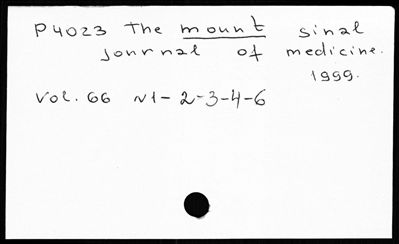 P4023 The mount sinal
journal of medicine.
1999.
Vol. 66 N1-2-3-4-6